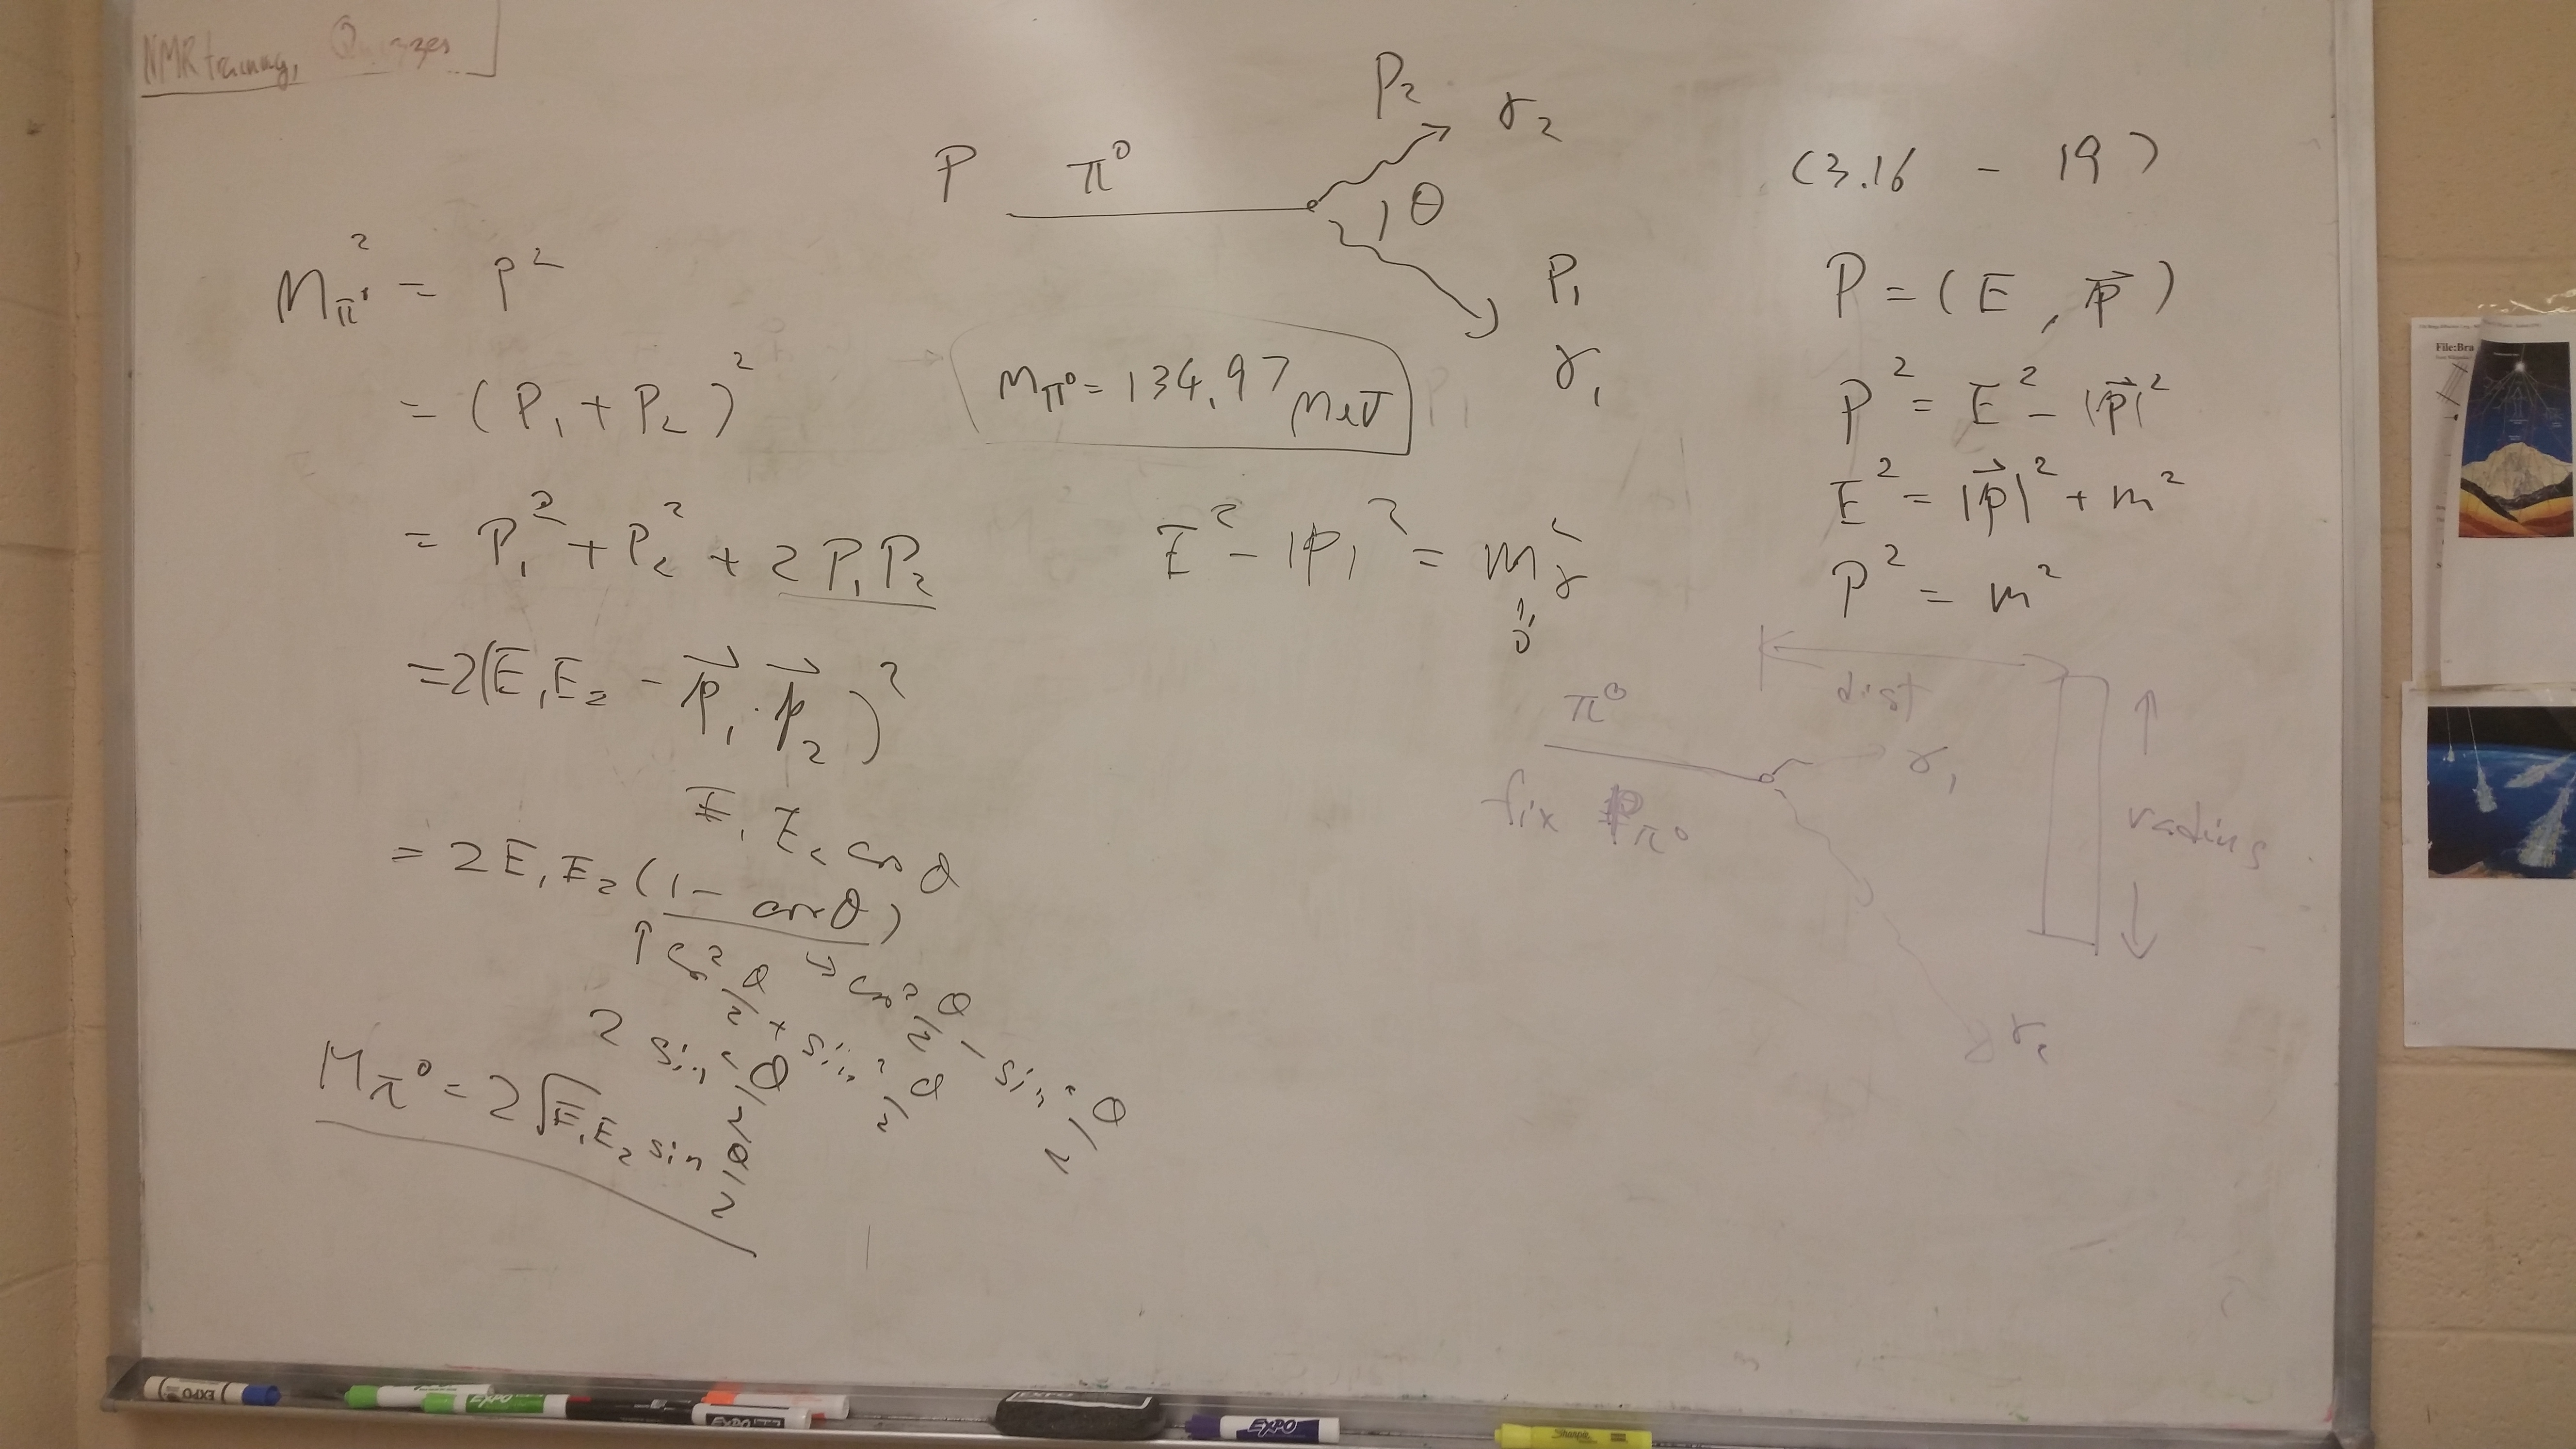 NMR training, Quizzes
P π⁰ P₂ γ₂
θ
P₁
γ₁
M_π⁰² = P²
= (P₁ + P₂)²
= P₁² + P₂² + 2P₁P₂
= 2(E₁E₂ - p⃗₁·p⃗₂)²
E₁E₂ cos θ
= 2E₁E₂(1 - cos θ)
↑ cos² θ/2 + sin² θ/2
→ cos² θ/2 - sin² θ/2
2 sin² θ/2
M_π⁰ = 2√E₁E₂ sin θ/2
M_π⁰ = 134.97 MeV
E² - |p|² = m_γ²
"
0
(3.16 - 19)
P = (E, p⃗)
P² = E² - |p⃗|²
E² = |p⃗|² + m²
P² = m²
dist
π⁰
γ₁
fix P_π⁰
radius
γ₂
File:Bra
EXPO
EXPO
EXPO
EXPO
EXPO
Sharpie